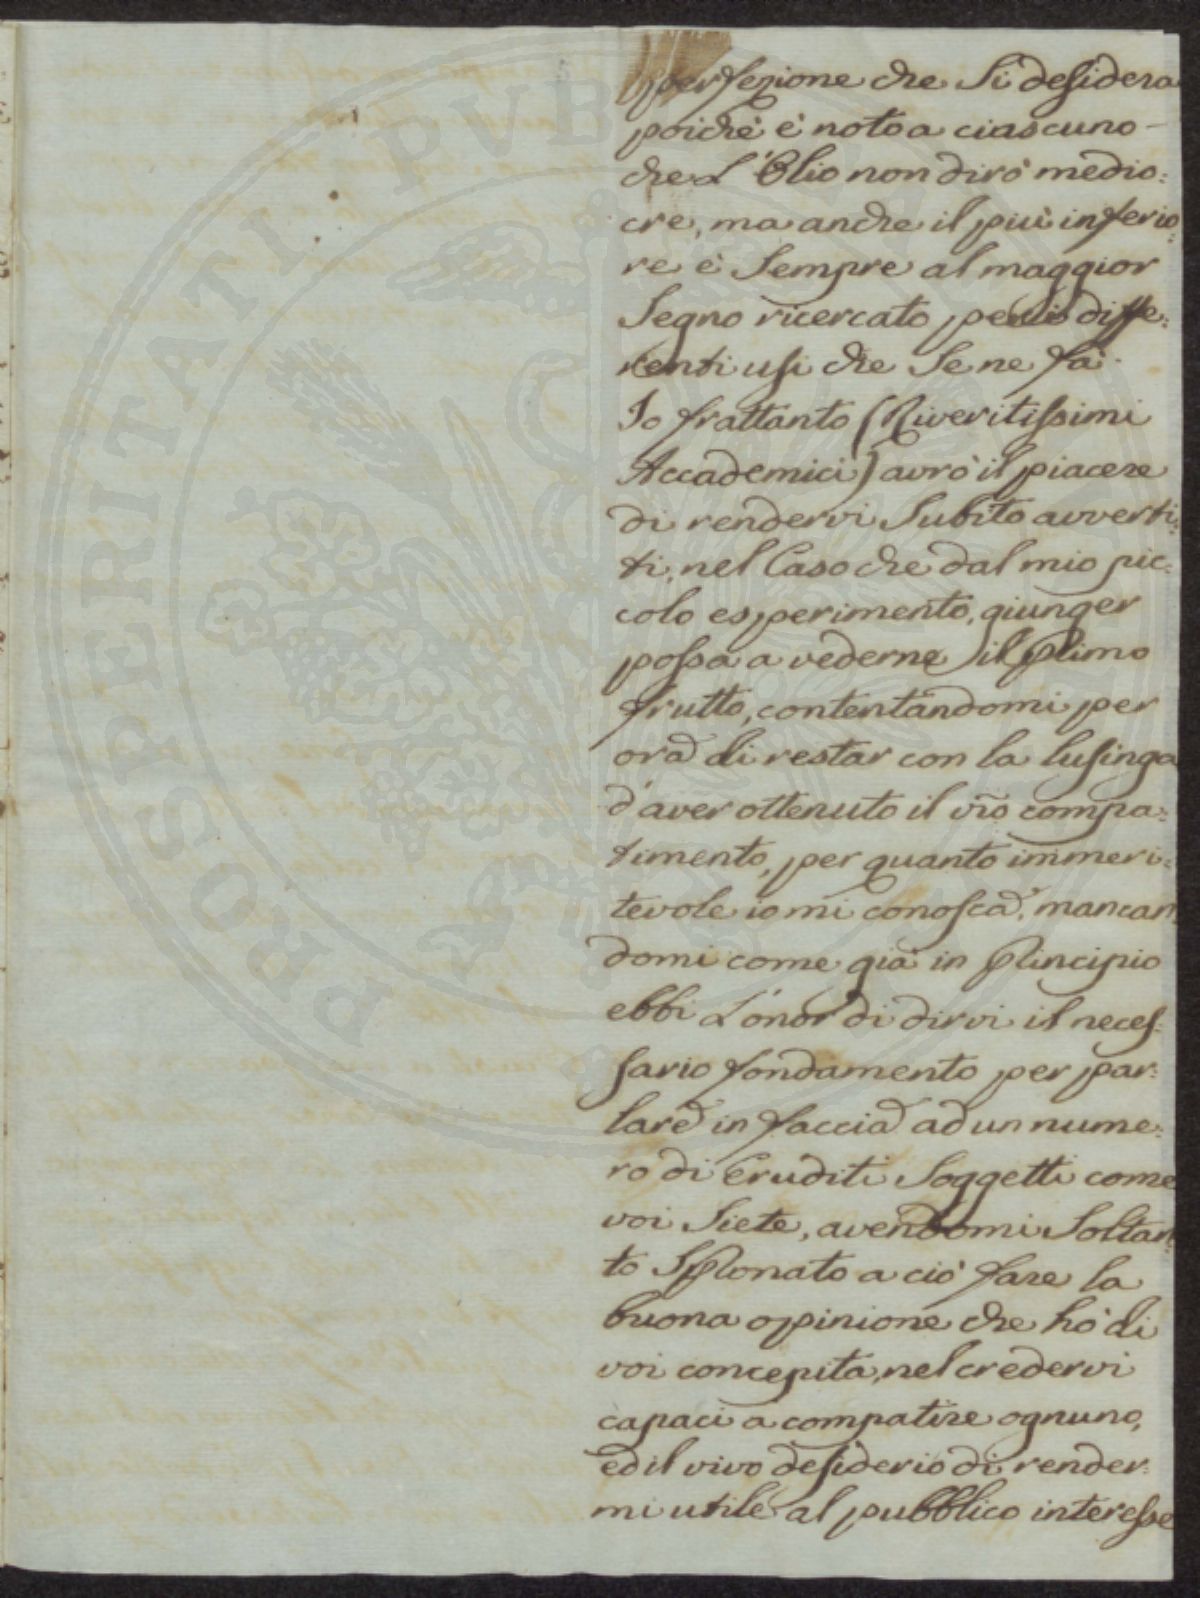 perfezione che Si desidera
poichè è noto a ciascuno
che L'Olio non dirò medio:
cre, ma anche il più inferio:
re è Sempre al maggior
Segno ricercato per li diffe:
renti usi che Se ne fà.
Io frattanto (Riveritissimi
Accademici) avrò il piacere
di rendervi Subito avverti:
ti, nel Caso che dal mio pic:
colo esperimento, giunger
possa a vederne il Primo
frutto, contentandomi per
ora di restar con la lusinga
d'aver ottenuto il vro compa:
timento, per quanto immeri:
tevole io mi conosca, mancan
domi come già in Principio
ebbi L'onor di dirvi il neces:
sario fondamento per par:
lare in faccia ad un nume:
ro di Eruditi Soggetti come
voi Siete, avendomi Soltan
to Spronato a ciò fare la
buona opinione che hò di
voi concepita, nel credervi
capaci a compatire ognuno,
ed il vivo desiderio di render:
mi utile al pubblico interesse
PROSPERITATI PUB